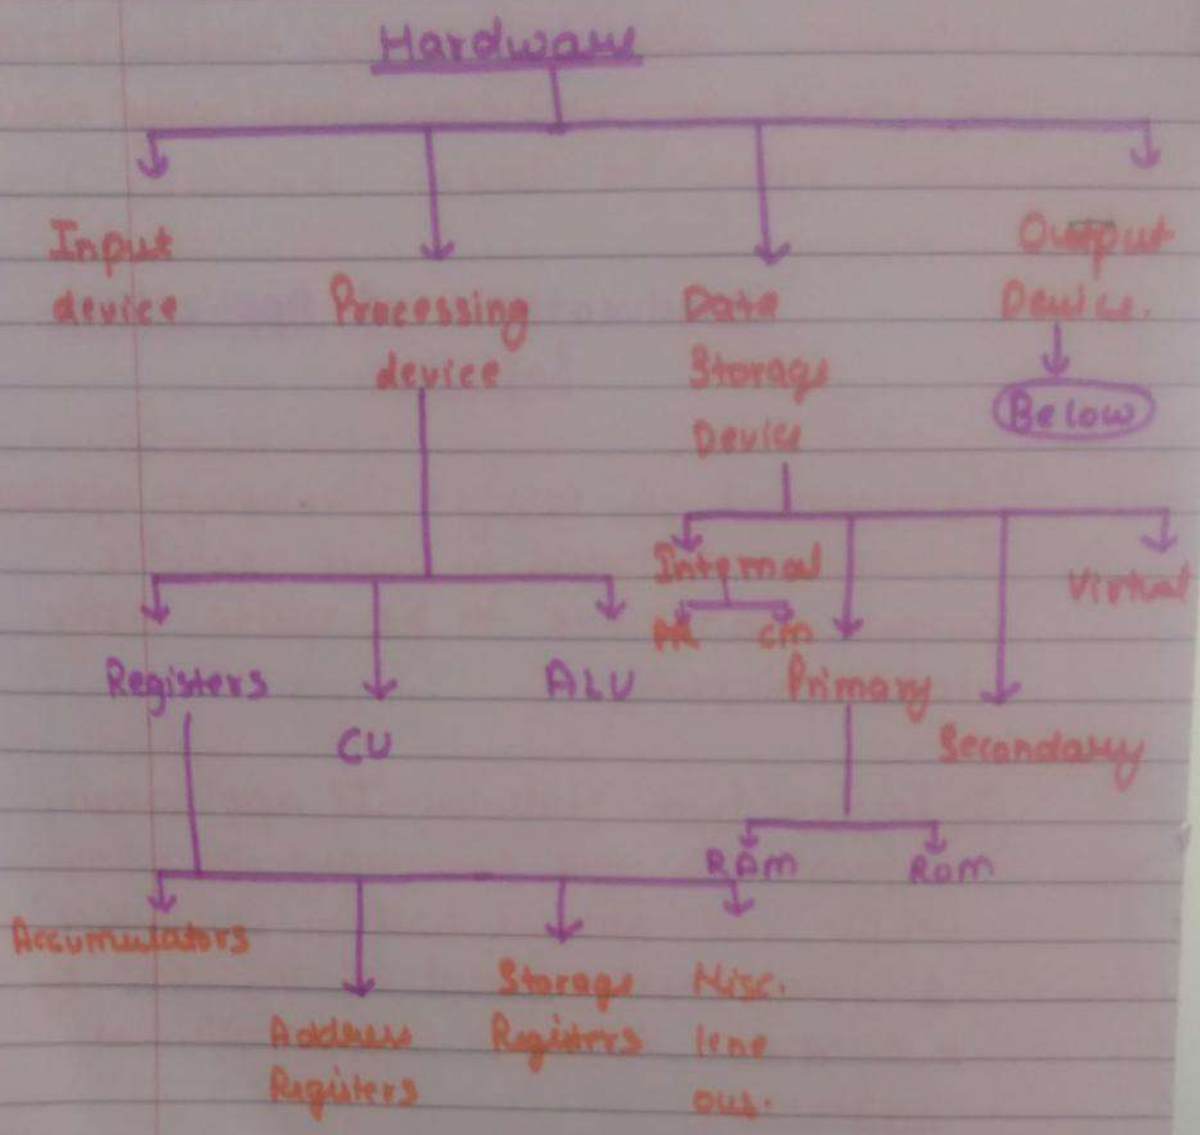 Hardware
Input
device
Processing
device
Data
Storage
Device
Output
Device.
Below
Internal
CM
Primary
Secondary
Virtual
Registers
CU
ALU
RAM
ROM
Accumulators
Address
Registers
Storage
Registers
Misc.
lene
ous.